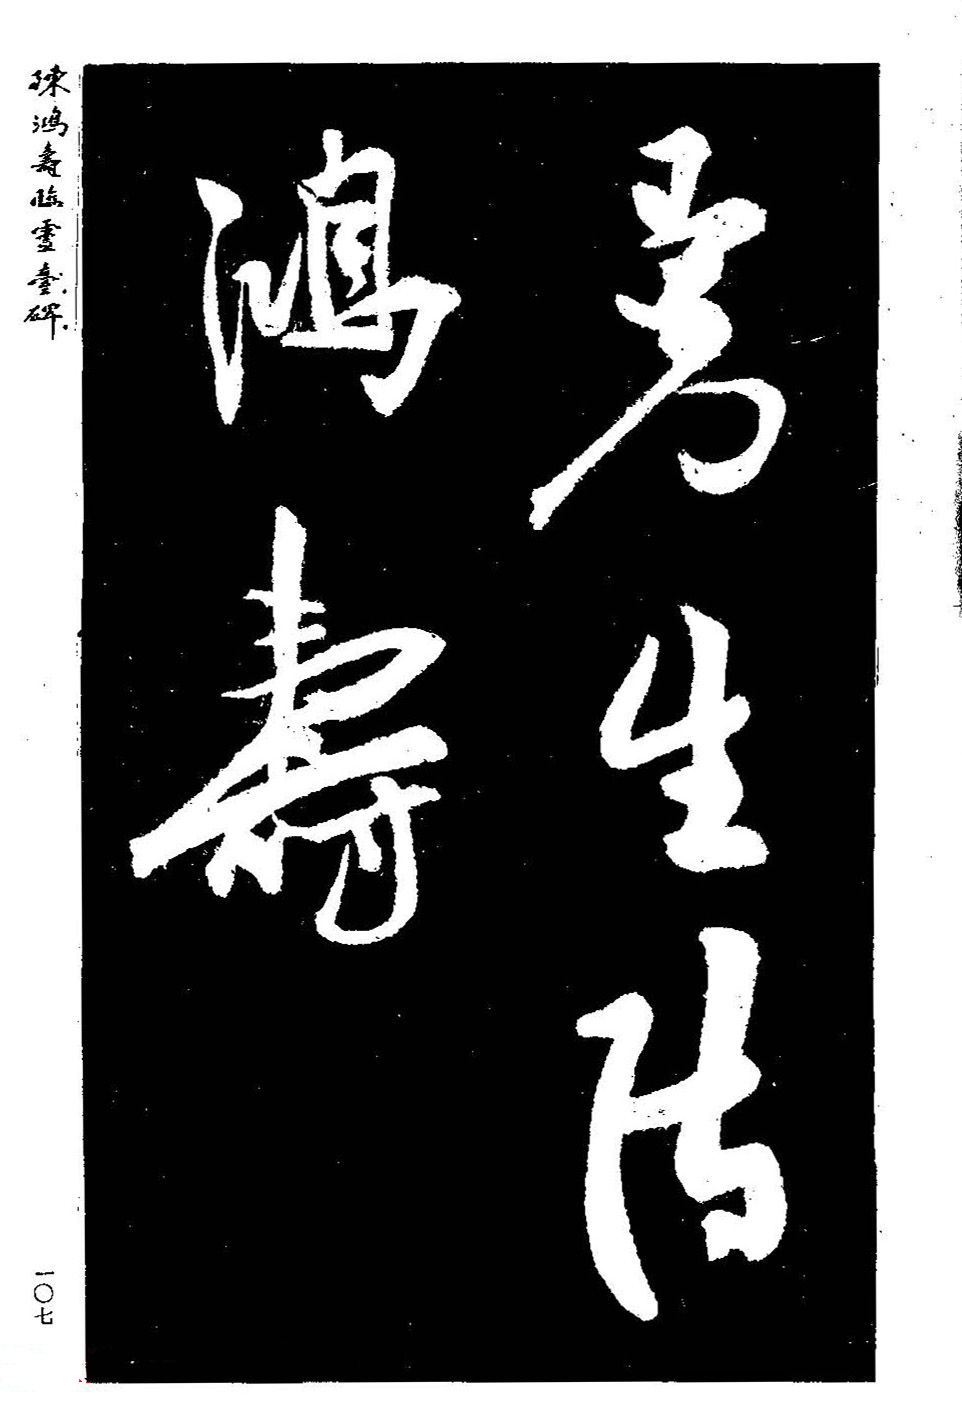 曼生陳
鴻壽
陳鴻壽臨靈臺碑
一〇七